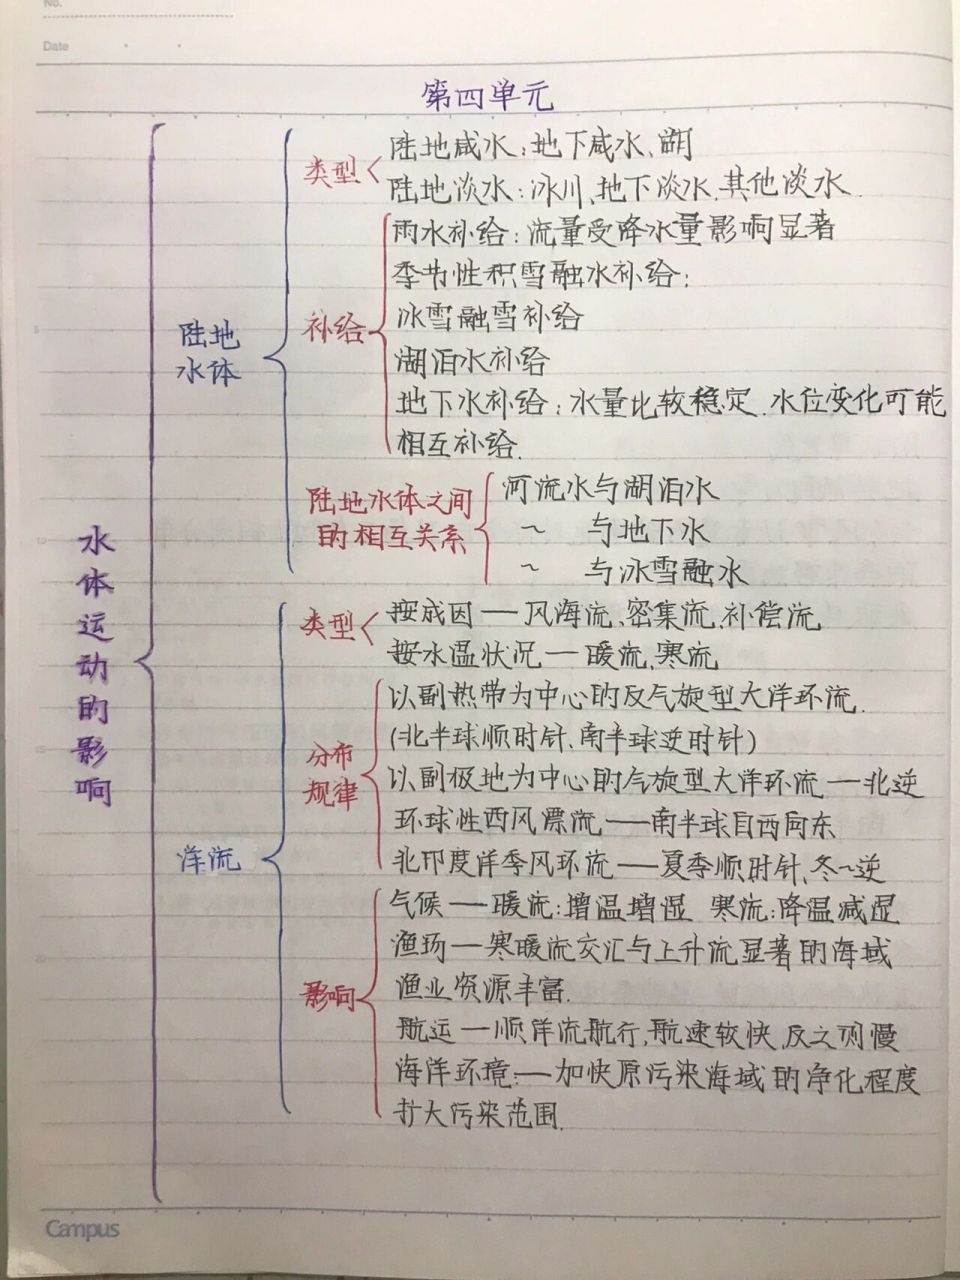 No.
Date
第四单元
水体运动的影响
陆地
水体
类型
陆地咸水:地下咸水、湖
陆地淡水:冰川、地下淡水、其他淡水
补给
雨水补给:流量受降水量影响显著
季节性积雪融水补给:
冰雪融雪补给
湖泊水补给
地下水补给:水量比较稳定.水位变化可能
相互补给.
陆地水体之间
的相互关系
河流水与湖泊水
~ 与地下水
~ 与冰雪融水
洋流
类型
按成因——风海流、密集流、补偿流
按水温状况——暖流、寒流
分布
规律
以副热带为中心的反气旋型大洋环流.
(北半球顺时针、南半球逆时针)
以副极地为中心的气旋型大洋环流——北逆
环球性西风漂流——南半球自西向东
北印度洋季风环流——夏季顺时针、冬~逆
影响
气候——暖流:增温增湿 寒流:降温减湿
渔场——寒暖流交汇与上升流显著的海域
渔业资源丰富.
航运——顺洋流航行,航速较快,反之则慢
海洋环境:——加快原污染海域的净化程度
扩大污染范围.
Campus